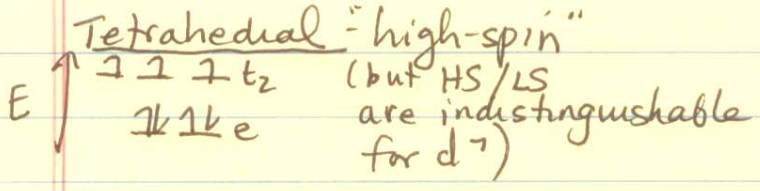 Tetrahedral - "high-spin"
1 1 1 t₂ (but HS/LS
E 1↓ 1↓ e are indistinguishable
for d⁷)